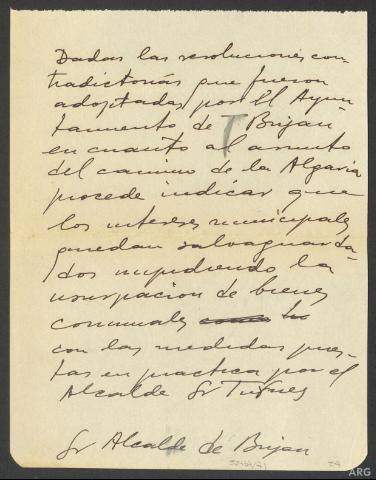 Dadas las resoluciones con-
tradictorias que fueron
adoptadas por El Ayun
tamiento de Brijan
en cuanto al asunto
del camino de la Algaria
procede indicar que
los intereses municipales
quedan salvaguarda-
dos impidiendo la
usurpacion de bienes
comunales
con las medidas pues-
tas en practica por el
Alcalde Sr
Sr Alcalde de Brijan
ARG